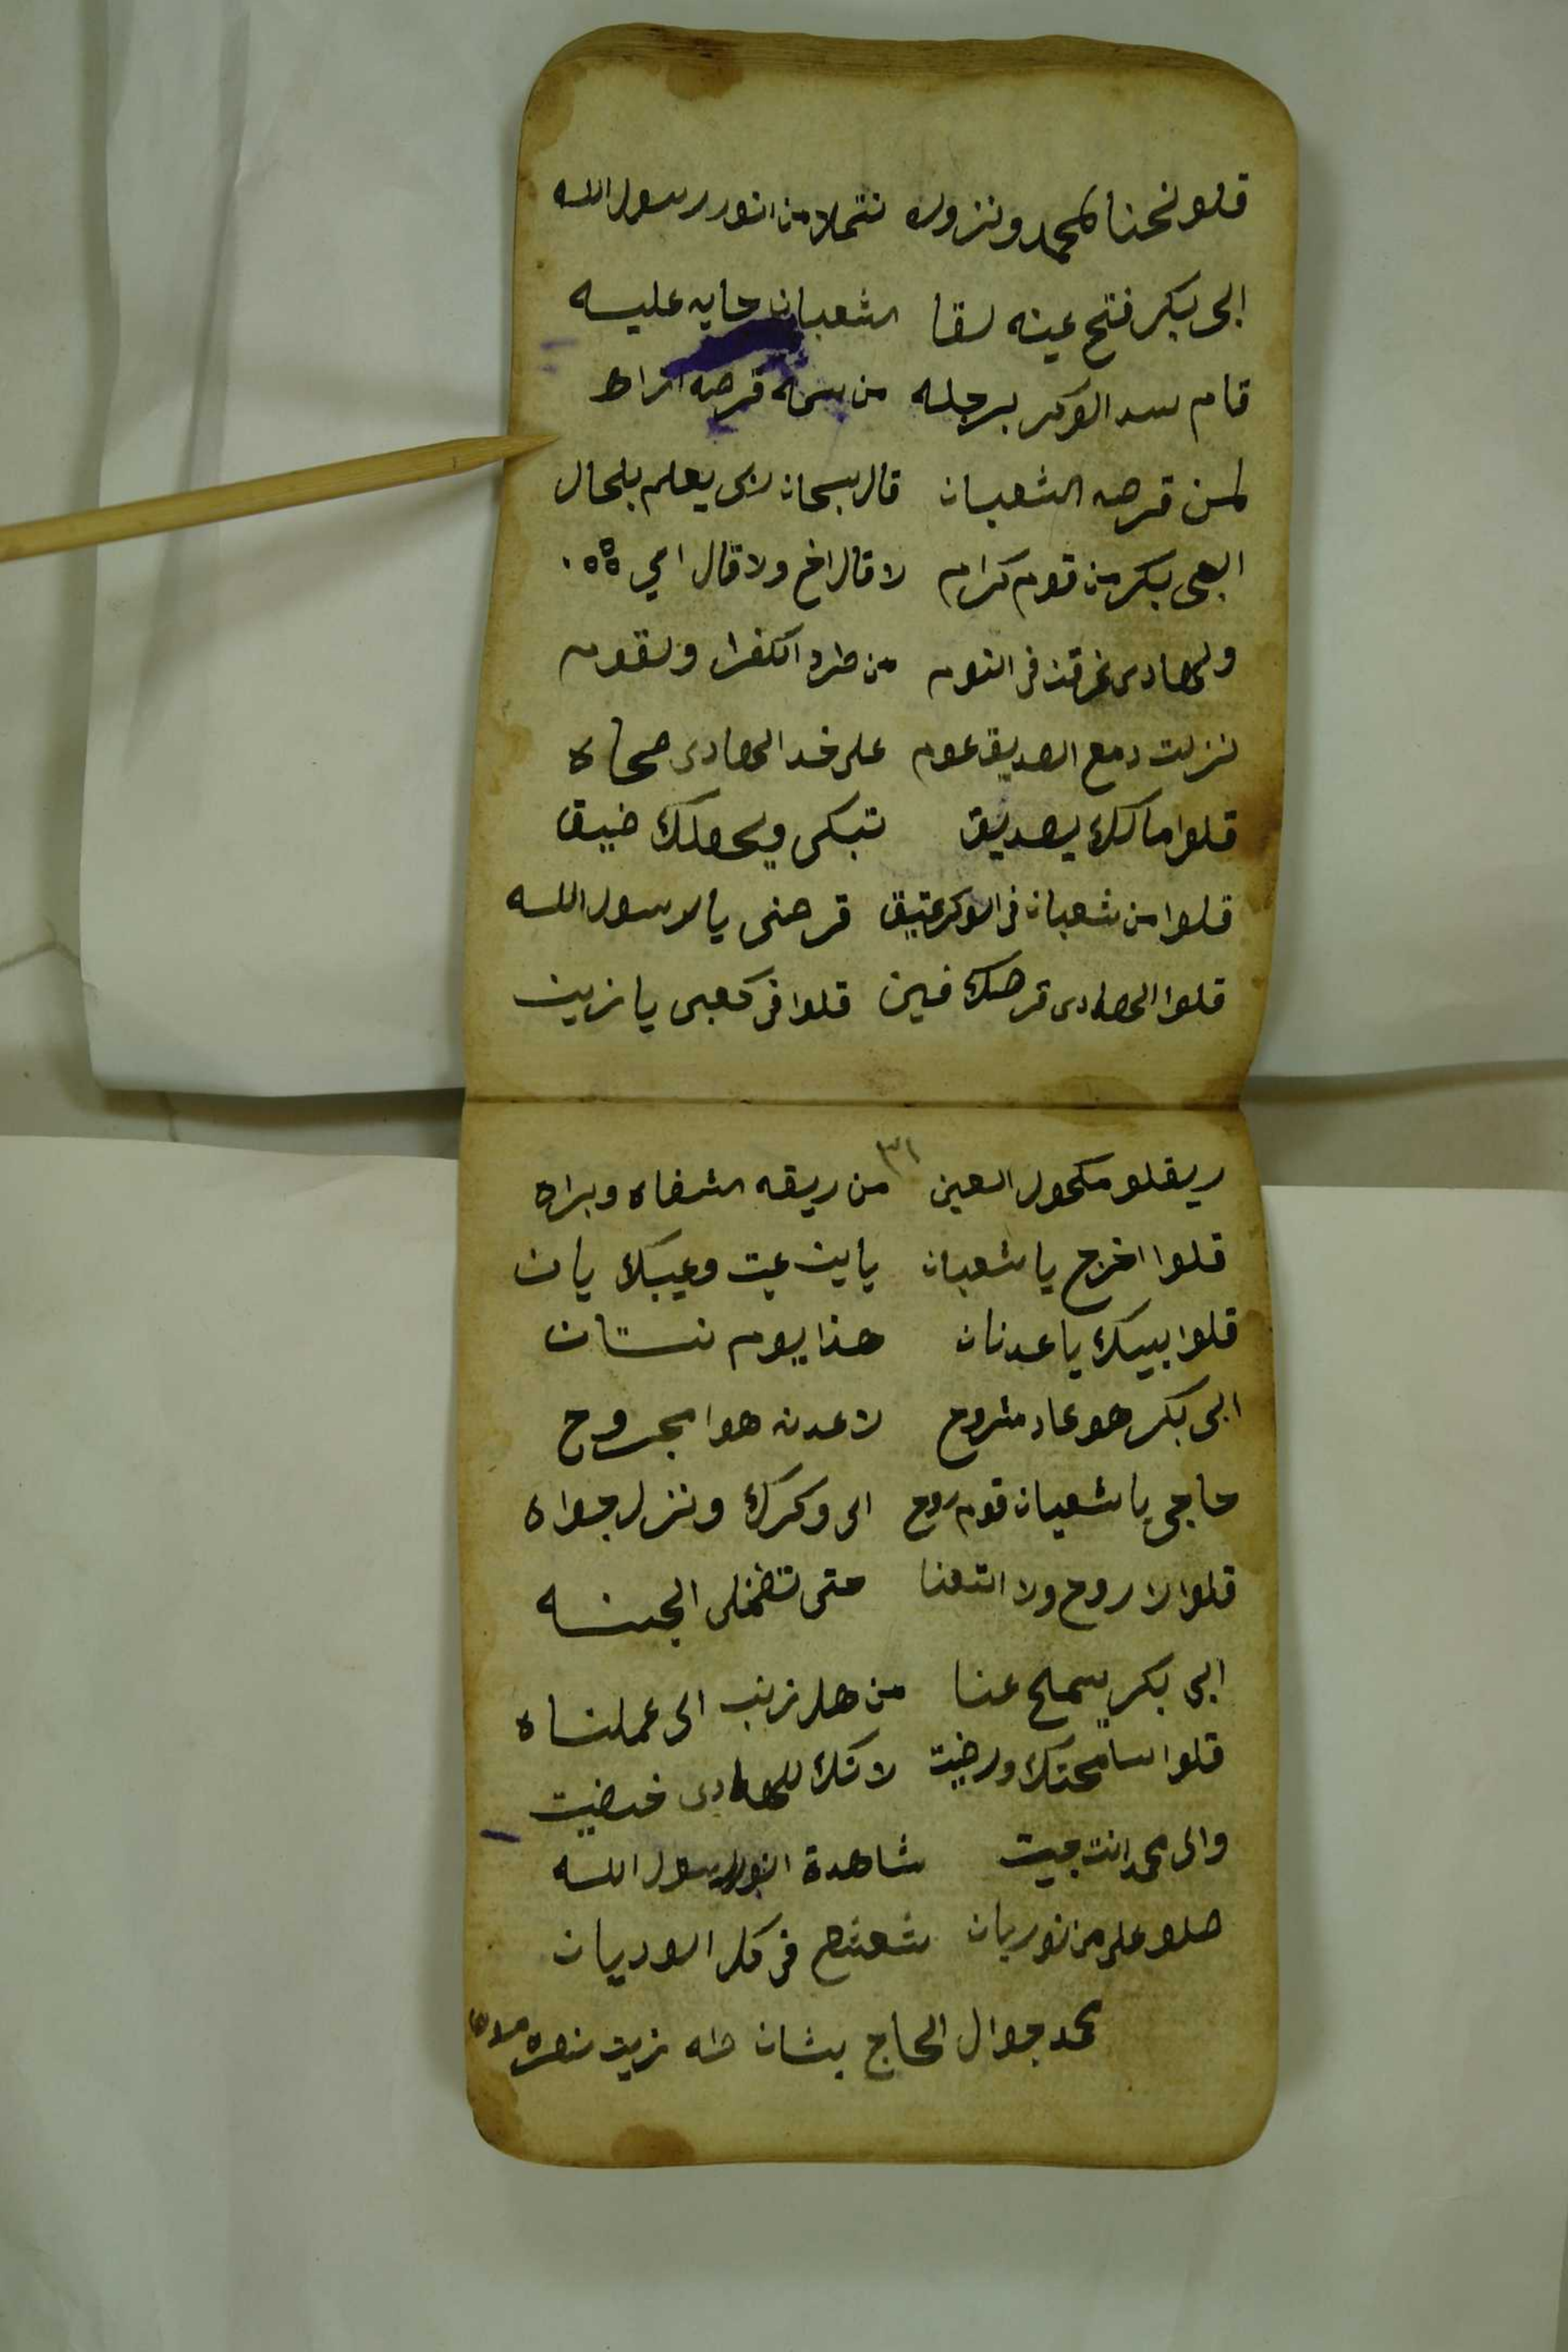 قلو نحنا لمحمد ونزوره نتملا من انور رسول الله
ابى بكر فتح عينه لقا الشعبان جايه عليه
قام سد الوكر برجله من سمه قرصه
لمن قرصه الشعبان قال سبحان ربى يعلم بلحال
ابى بكر من قوم كرام لا قال اخ ولا قال امي
ولهادى غرقن فى النوم من طرد الكفرا ولقوم
نزلت دمع الصديق عوم على خد الهادى صحاه
قلوا مالك يصديق تبكى ويحقلك ضيق
قلوا من شعبان فى الوكر عتيق قرصنى يا رسول الله
قلوا الهادى قرصك فين قلوا فى كعبى يا زين
٣١
ريقلو مكحول العين من ريقه الشفاه وبراه
قلوا اخرج يا شعبان ياين عيت وعيبك يان
قلوا بييك يا عدنان هذا يوم
ابى بكر هو عاد مشروح لاعدنه هوا مجروح
حاجى يا شعبان قوم روح الى وكرك ونزل جواه
قلوا لا روح ولا اتعنا حتى تضمنلى الجنه
ابى بكر يسمح عنا من هل زنب الى عملناه
قلوا سامحتك ورضيت لانك للهادى خضيت
والى محمد انت جيت شاهدة انور رسول الله
صلو على من نور بان شعشع فى كل الوديان
محمد جوال الحاج بشان طه زين